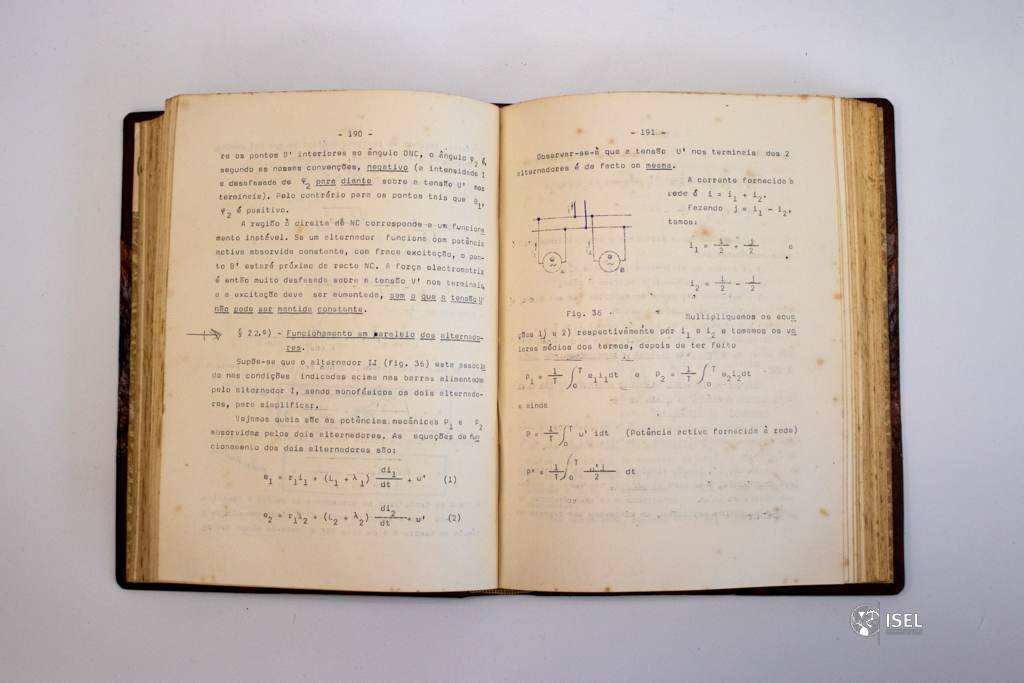 - 190 -
ra os pontos B' interiores ao ângulo ONC, o ângulo φ2 é,
segundo as nossas convenções, negativo (a intensidade I
e desafasada de φ2 para diante sobre a tensão U' nos
terminais). Pelo contrário para os pontos tais que B1,
φ2 é positivo.
A região à direita de NC corresponde a um funciona
mento instável. Se um alternador funciona com potência
activa absorvida constante, com fraca excitação, o pon-
to B' estará próximo da recta NC. A força electromotriz
é então muito desfasada sobre a tensão V' nos terminais,
e a excitação deve ser aumentada, sem o que a tensão U'
não pode ser mantida constante.
§ 22.º) - Funcionamento em paralelo dos alternado-
res.
Supõe-se que o alternador II (fig. 36) esta associa
do nas condições indicadas acima nas barras alimentadas
pelo alternador I, sendo monofásicos os dois alternado-
res, para simplificar.
Vejamos quais são as potências mecânicas P1 e P2
absorvidas pelos dois alternadores. As equações de fun
cionamento dos dois alternadores são:
e1 = r1i1 + (L1 + λ1) di1/dt + u' (1)
e2 = r1i2 + (L2 + λ2) di2/dt + u' (2)
- 191 -
Observar-se-à que a tensão U' nos terminais dos 2
alternadores é de facto os mesma.
A corrente fornecida à
rede é i = i1 + i2.
Fazendo j = i1 - i2,
temos:
i1 = i/2 + j/2 e
i2 = i/2 - j/2
Fig. 36
Multipliquemos as equa
ções 1) e 2) respectivamente por i1 e i2 e tomemos os va
lores médios dos termos, depois de ter feito
P1 = 1/T ∫0T e1i1dt e P2 = 1/T ∫0T e2i2dt
e ainda
P = 1/T ∫0T u' idt (Potência activa fornecida à rede)
P' = 1/T ∫0T u'j/2 dt
ISEL